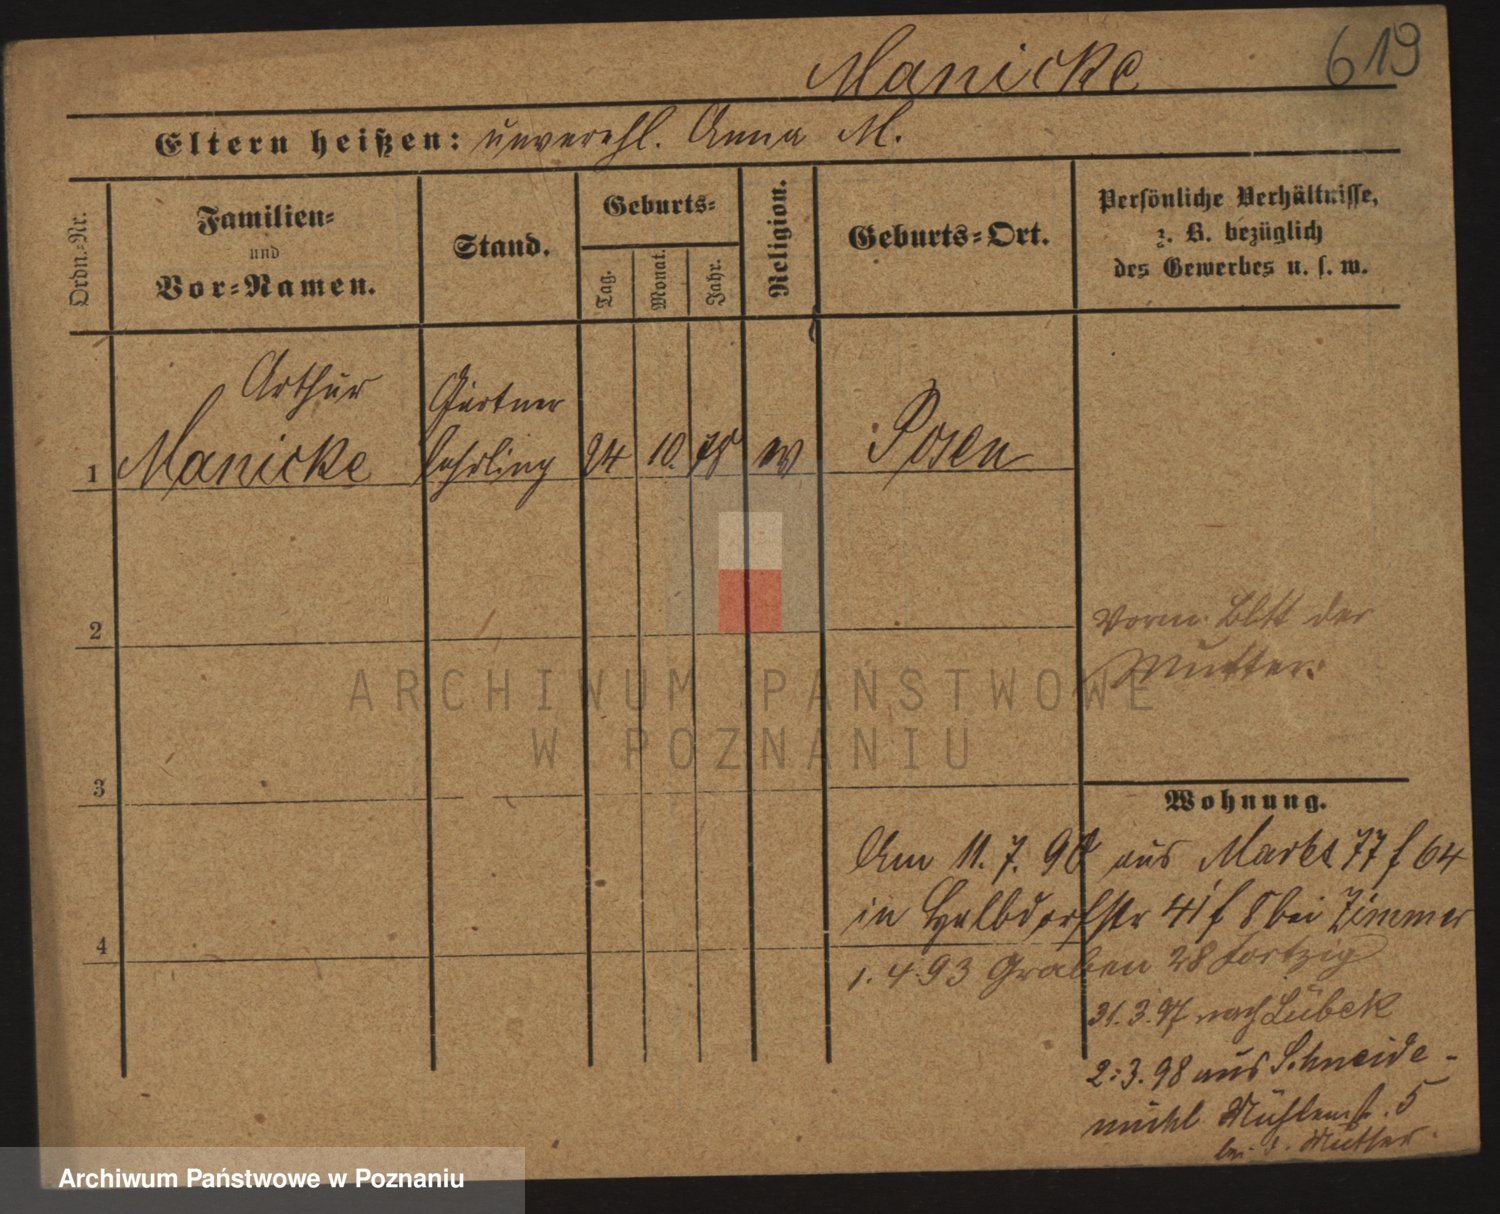 Manicke
619
Eltern heißen: unverehl. Anna M.
Ordn.-Nr.
Familien-
und
Vor-Namen.
Stand.
Geburts-
Tag.
Monat.
Jahr.
Religion.
Geburts-Ort.
Persönliche Verhältnisse,
z. B. bezüglich
des Gewerbes u. s. w.
Arthur
Gärtner
1 Manicke lehrling 24 10. 78 ev Posen
2
Vorm. Bltt der
Mutter.
ARCHIWUM PAŃSTWOWE
W POZNANIU
3
Wohnung.
Am 11. 7. 90 aus Markt 77 f 64
in Halbdorfstr 41 f 8 bei Zimmer
4
1. 4. 93 Graben 28
31. 3. 97 nach Lübeck
2. 3. 98 aus Schneide-
mühl Mühlenstr. 5
bei d. Mutter.
Archiwum Państwowe w Poznaniu